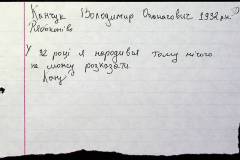 Кончук Володимир Опанасович 1932 р.н.
У 32 році я народився тому нічого
не можу розказати